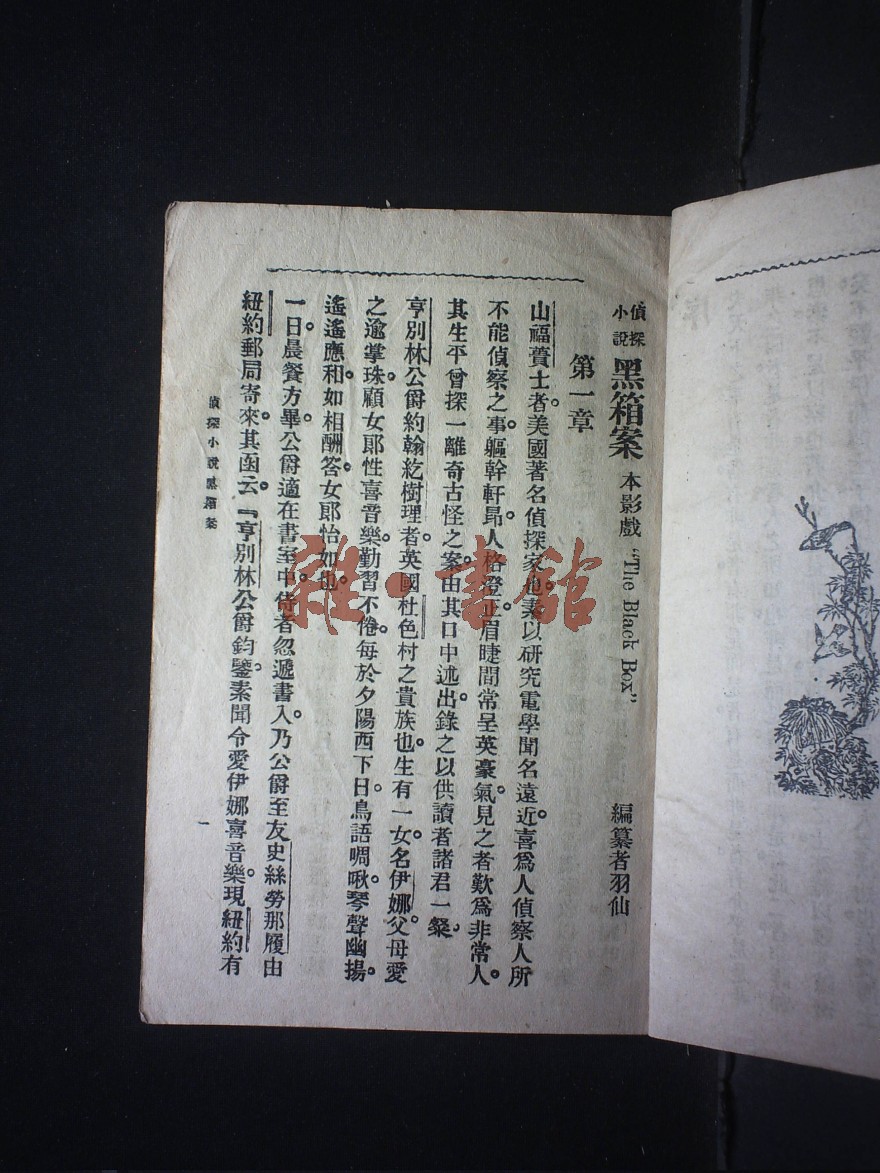 偵探小說 黑箱案 本影戲 “The Black Box” 編纂者羽仙
第一章
山福蕢士者。美國著名偵探家也。素以研究電學聞名遠近。喜爲人偵察人所
不能偵察之事。軀幹軒昂。人格澄正。眉睫間常呈英豪氣。見之者歎爲非常人。
其生平曾探一離奇古怪之案。由其口中述出。錄之以供讀者諸君一粲。
亨別林公爵約翰紇樹理者。英國杜色村之貴族也。生有一女。名伊娜。父母愛
之逾掌珠。顧女郎性喜音樂。勤習不倦。每於夕陽西下日。鳥語啁啾。琴聲幽揚。
遙遙應和。如相酬答。女郎怡如也。
一日。晨餐方畢。公爵適在書室中。侍者忽遞書入。乃公爵至友史絲勞那履由
紐約郵局寄來。其函云。『亨別林公爵鈞鑒。素聞令愛伊娜喜音樂。現紐約有
偵探小說黑箱案
一
雜·書館